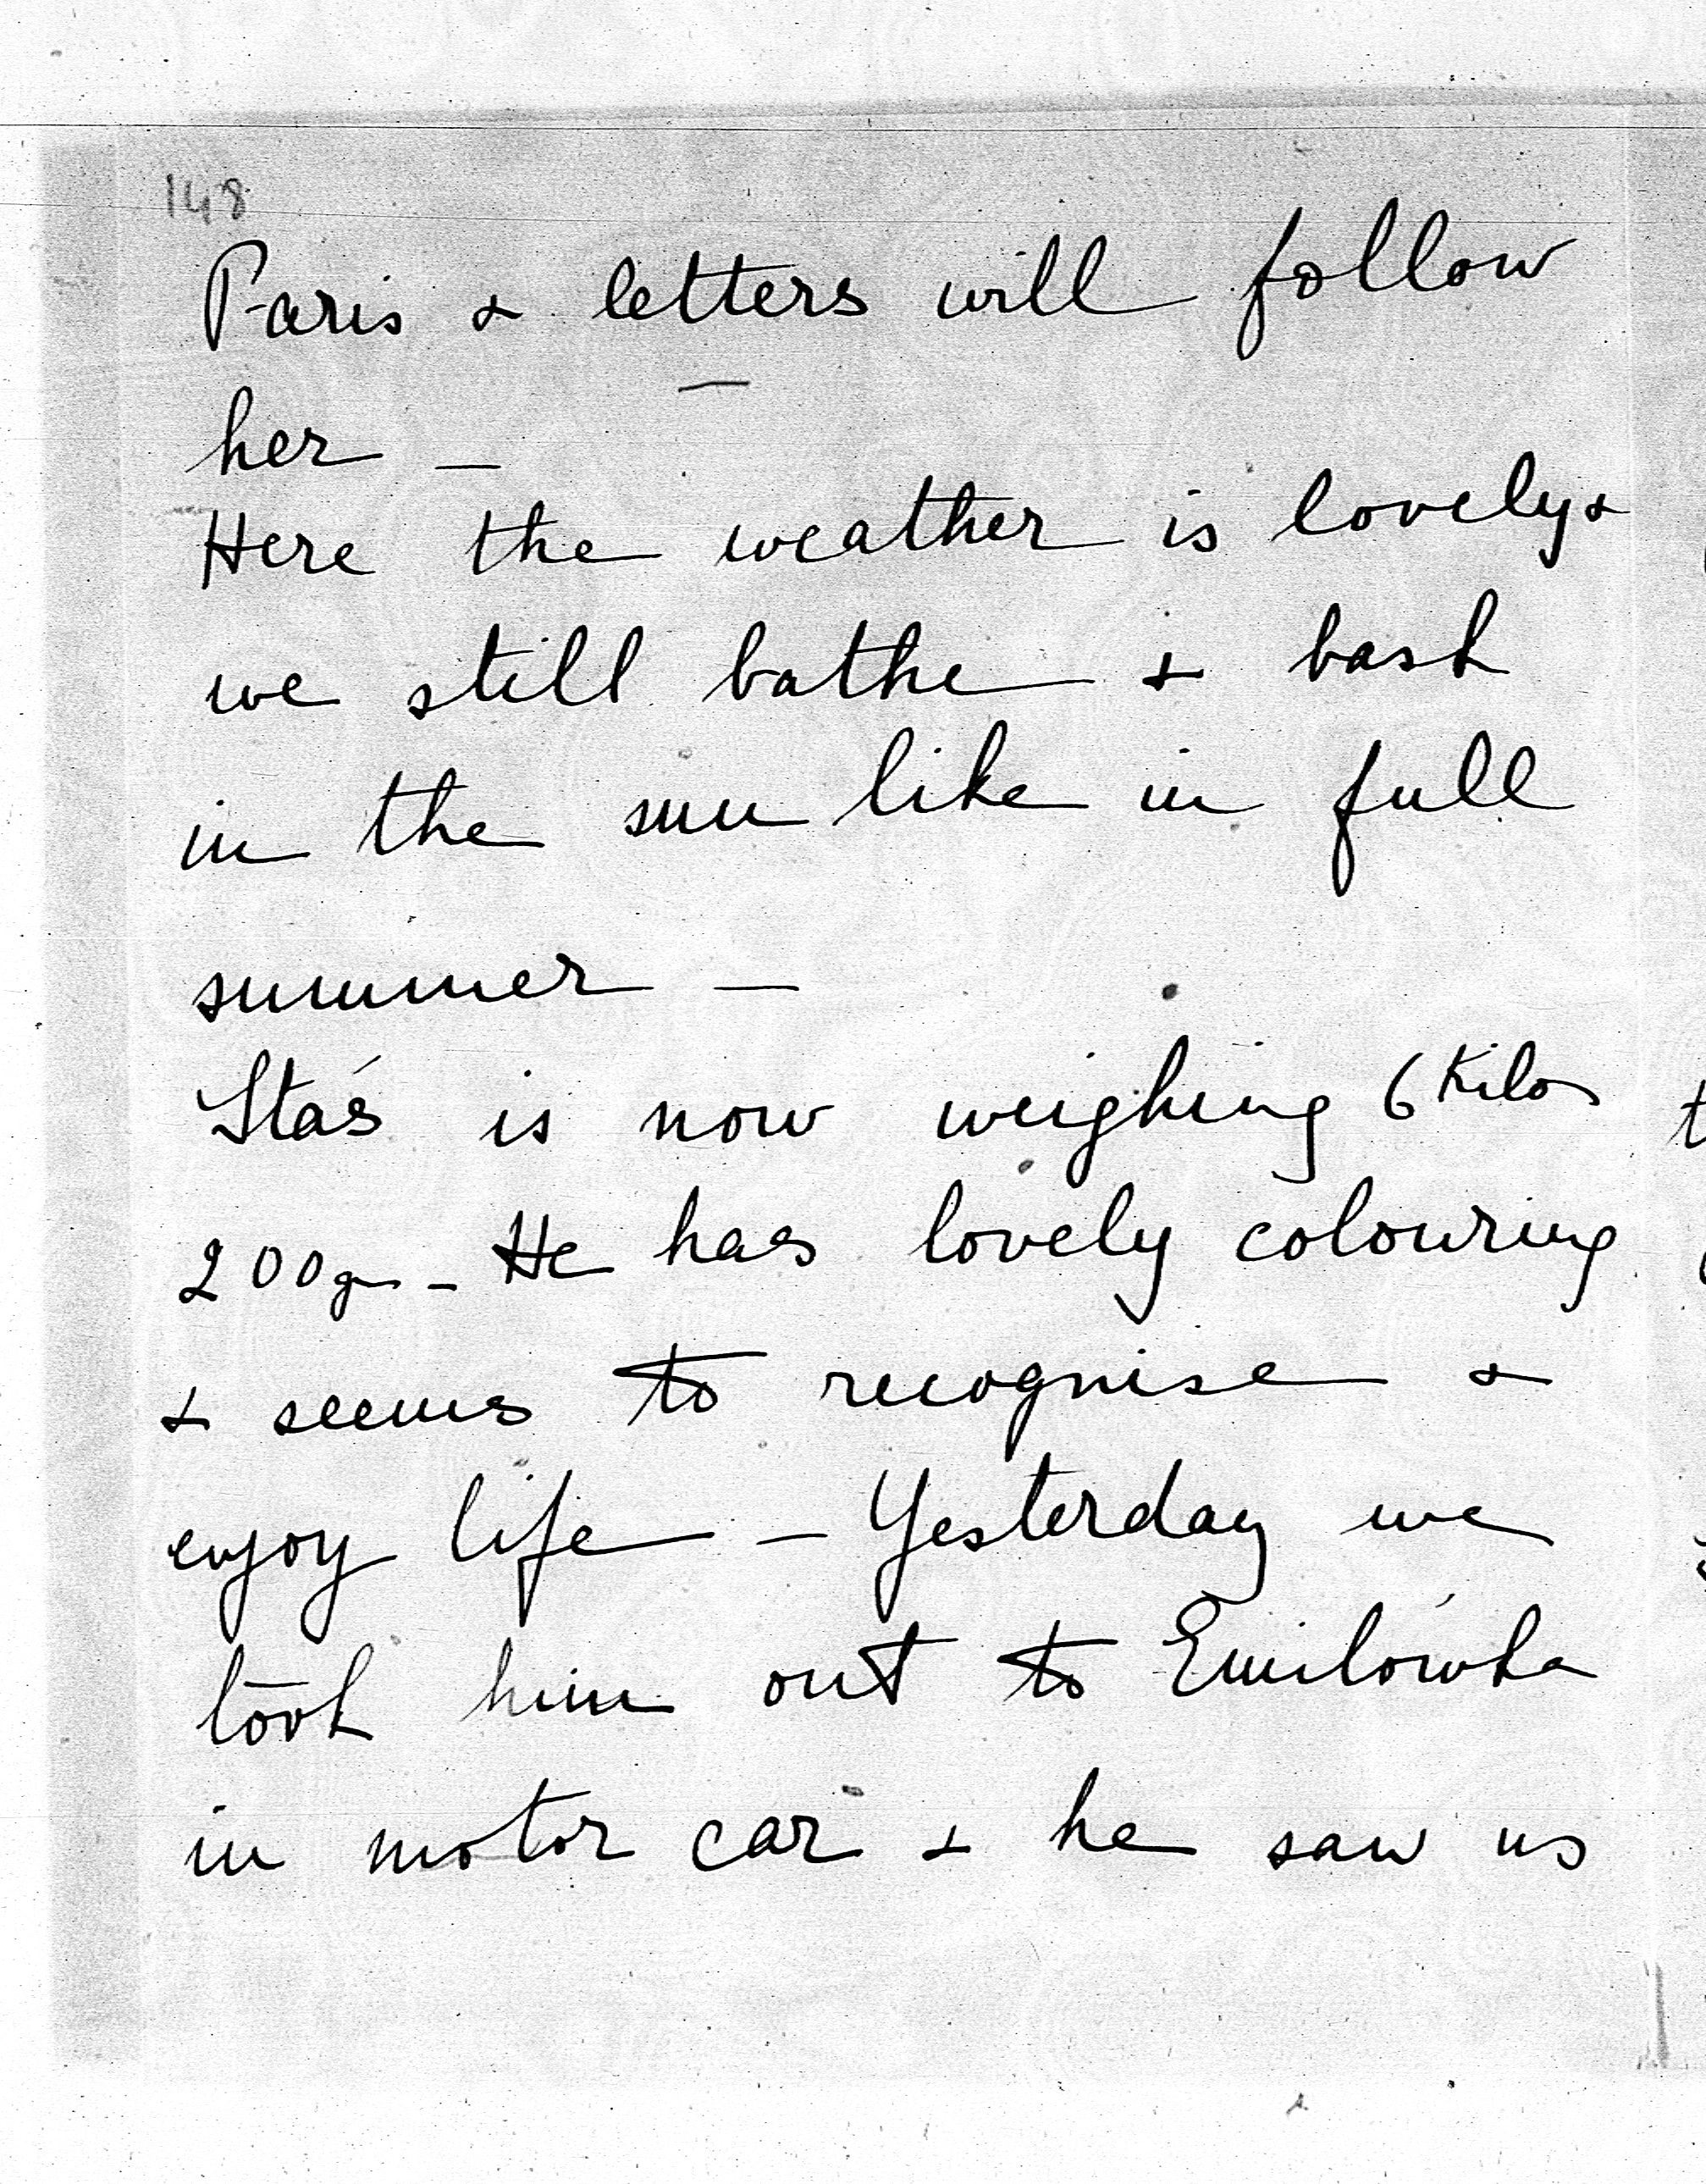 148
Paris & letters will follow
her —
Here the weather is lovely &
we still bathe & bask
in the sun like in full
summer —
Staś is now weighing 6 Kilos
200 gr — He has lovely colouring
& seems to recognise &
enjoy life — Yesterday we
took him out to Emilówka
in motor car & he saw us